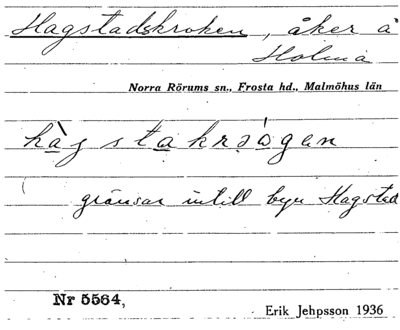 Hagstadskroken, åker å
Holma
Norra Rörums sn., Frosta hd., Malmöhus län
hàgstakrɔ́ágen
gränsar intill byn Hagstad
Nr 5564,
Erik Jehpsson 1936